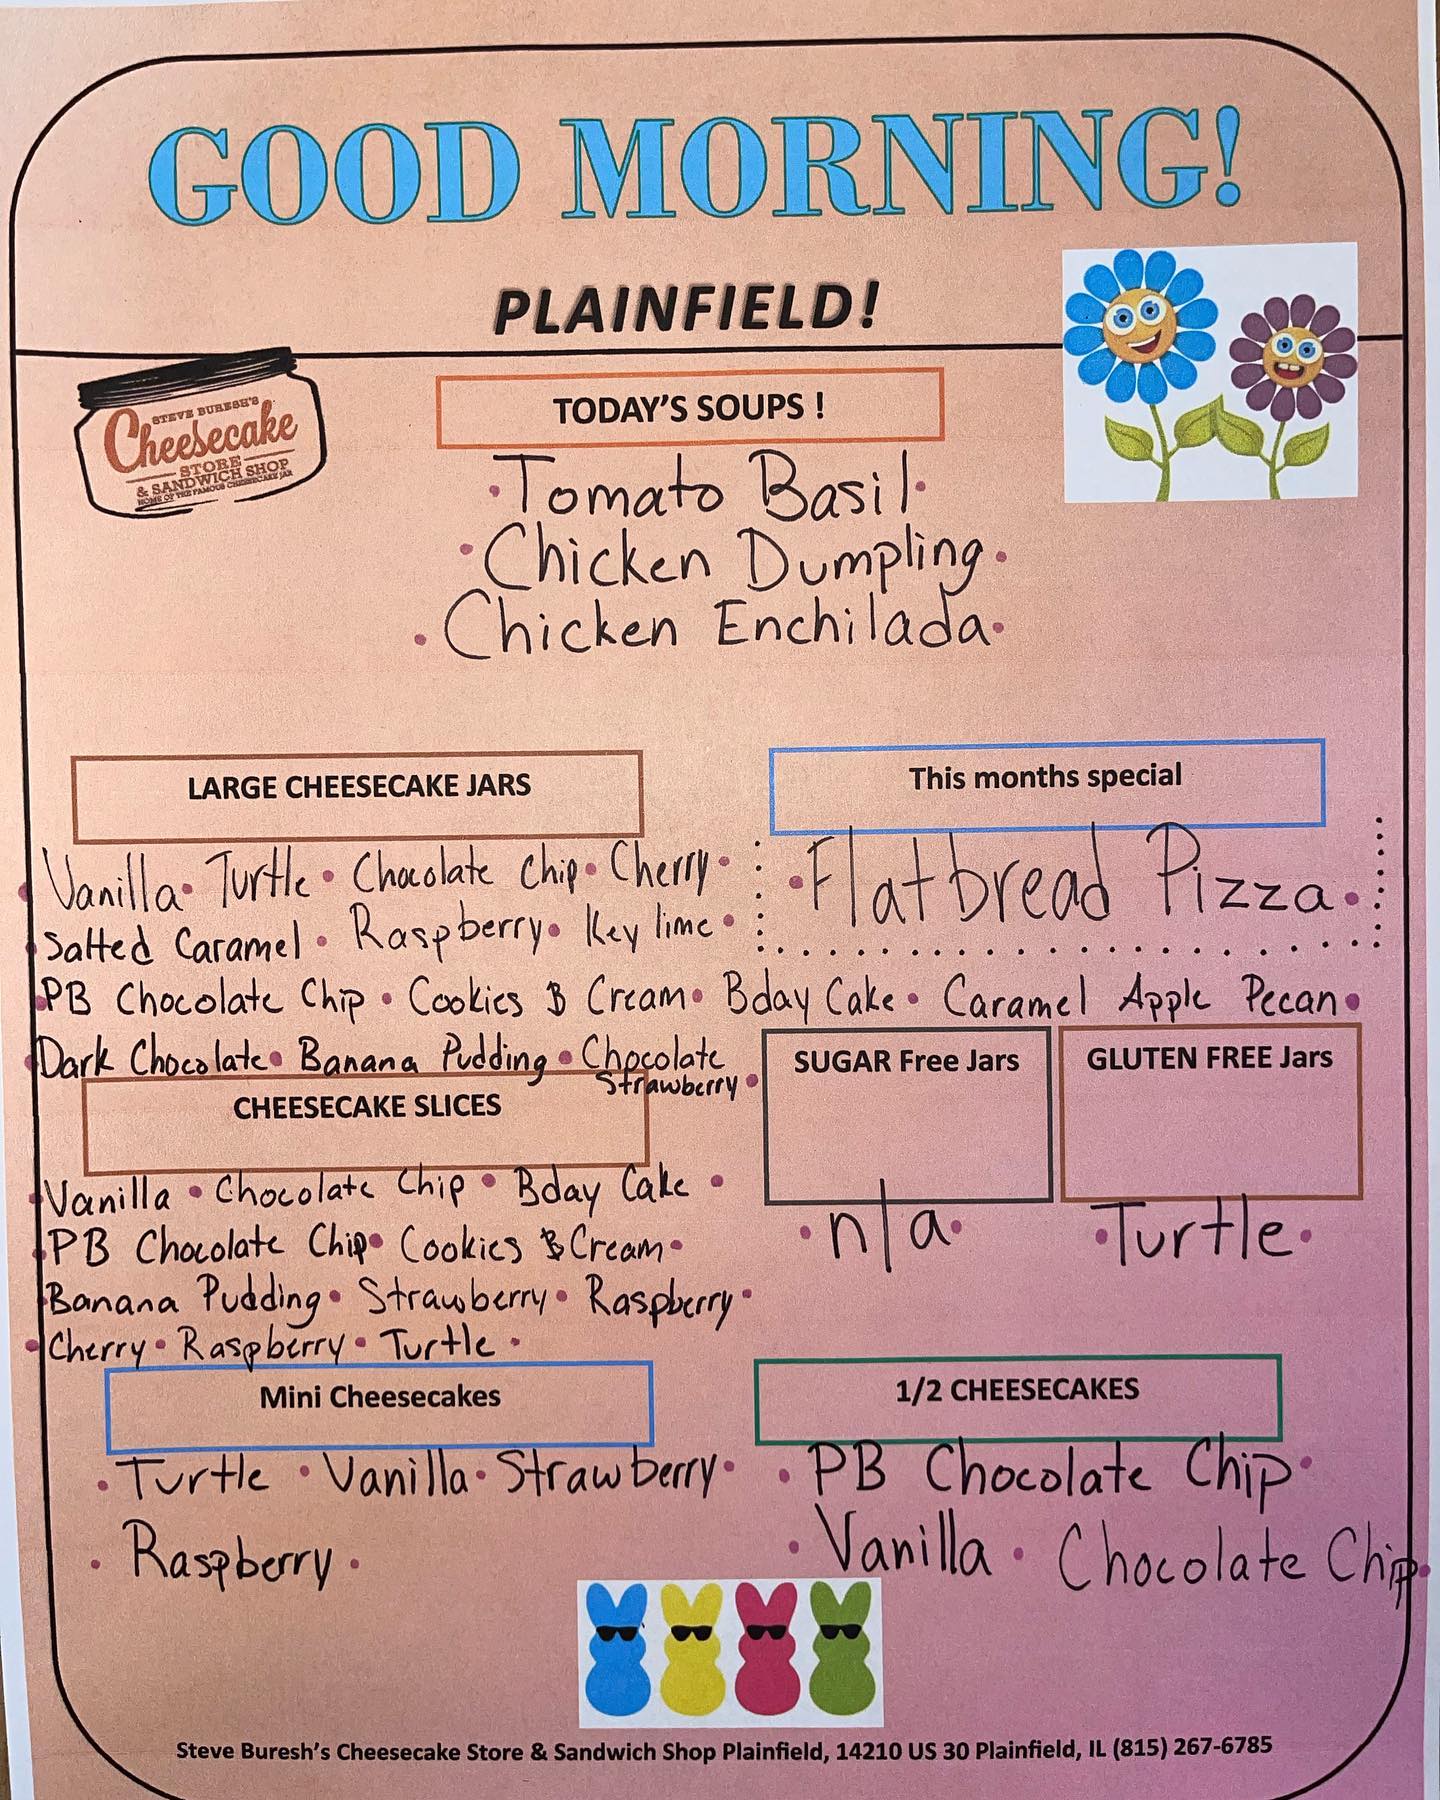 GOOD MORNING!
PLAINFIELD!
STEVE BURESH'S
Cheesecake
STORE
& SANDWICH SHOP
HOME OF THE FAMOUS CHEESECAKE JAR
TODAY'S SOUPS !
Tomato Basil
Chicken Dumpling
Chicken Enchilada
LARGE CHEESECAKE JARS
Vanilla • Turtle • Chocolate Chip • Cherry •
Salted Caramel • Raspberry • Key lime •
This months special
• Flatbread Pizza •
PB Chocolate Chip • Cookies & Cream • Bday Cake • Caramel Apple Pecan •
Dark Chocolate • Banana Pudding • Chocolate
Strawberry •
SUGAR Free Jars
• n/a •
GLUTEN FREE Jars
• Turtle •
CHEESECAKE SLICES
Vanilla • Chocolate Chip • Bday Cake •
PB Chocolate Chip • Cookies & Cream •
Banana Pudding • Strawberry • Raspberry •
Cherry • Raspberry • Turtle •
Mini Cheesecakes
• Turtle • Vanilla • Strawberry •
• Raspberry •
1/2 CHEESECAKES
• PB Chocolate Chip •
• Vanilla • Chocolate Chip •
Steve Buresh's Cheesecake Store & Sandwich Shop Plainfield, 14210 US 30 Plainfield, IL (815) 267-6785